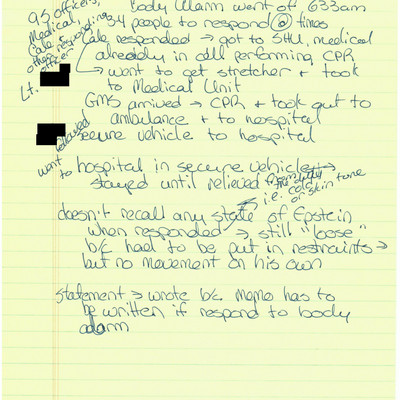 Body Alarm went of 633am
34 people to respond @ times
responded → got to SHU, medical
already in cell performing CPR
→ went to get stretcher + took
to Medical Unit
Lt.
arrived → CPR + took out to
ambulance + to hospital
followed
secure vehicle to hospital
went to hospital in secure vehicle →
stayed until relieved
i.e. color
or skin tone
doesn't recall any state of Epstein
when responded → still "loose"
b/c had to be put in restraints →
but no movement on his own
statement → wrote b/c memo has to
be written if respond to body
alarm